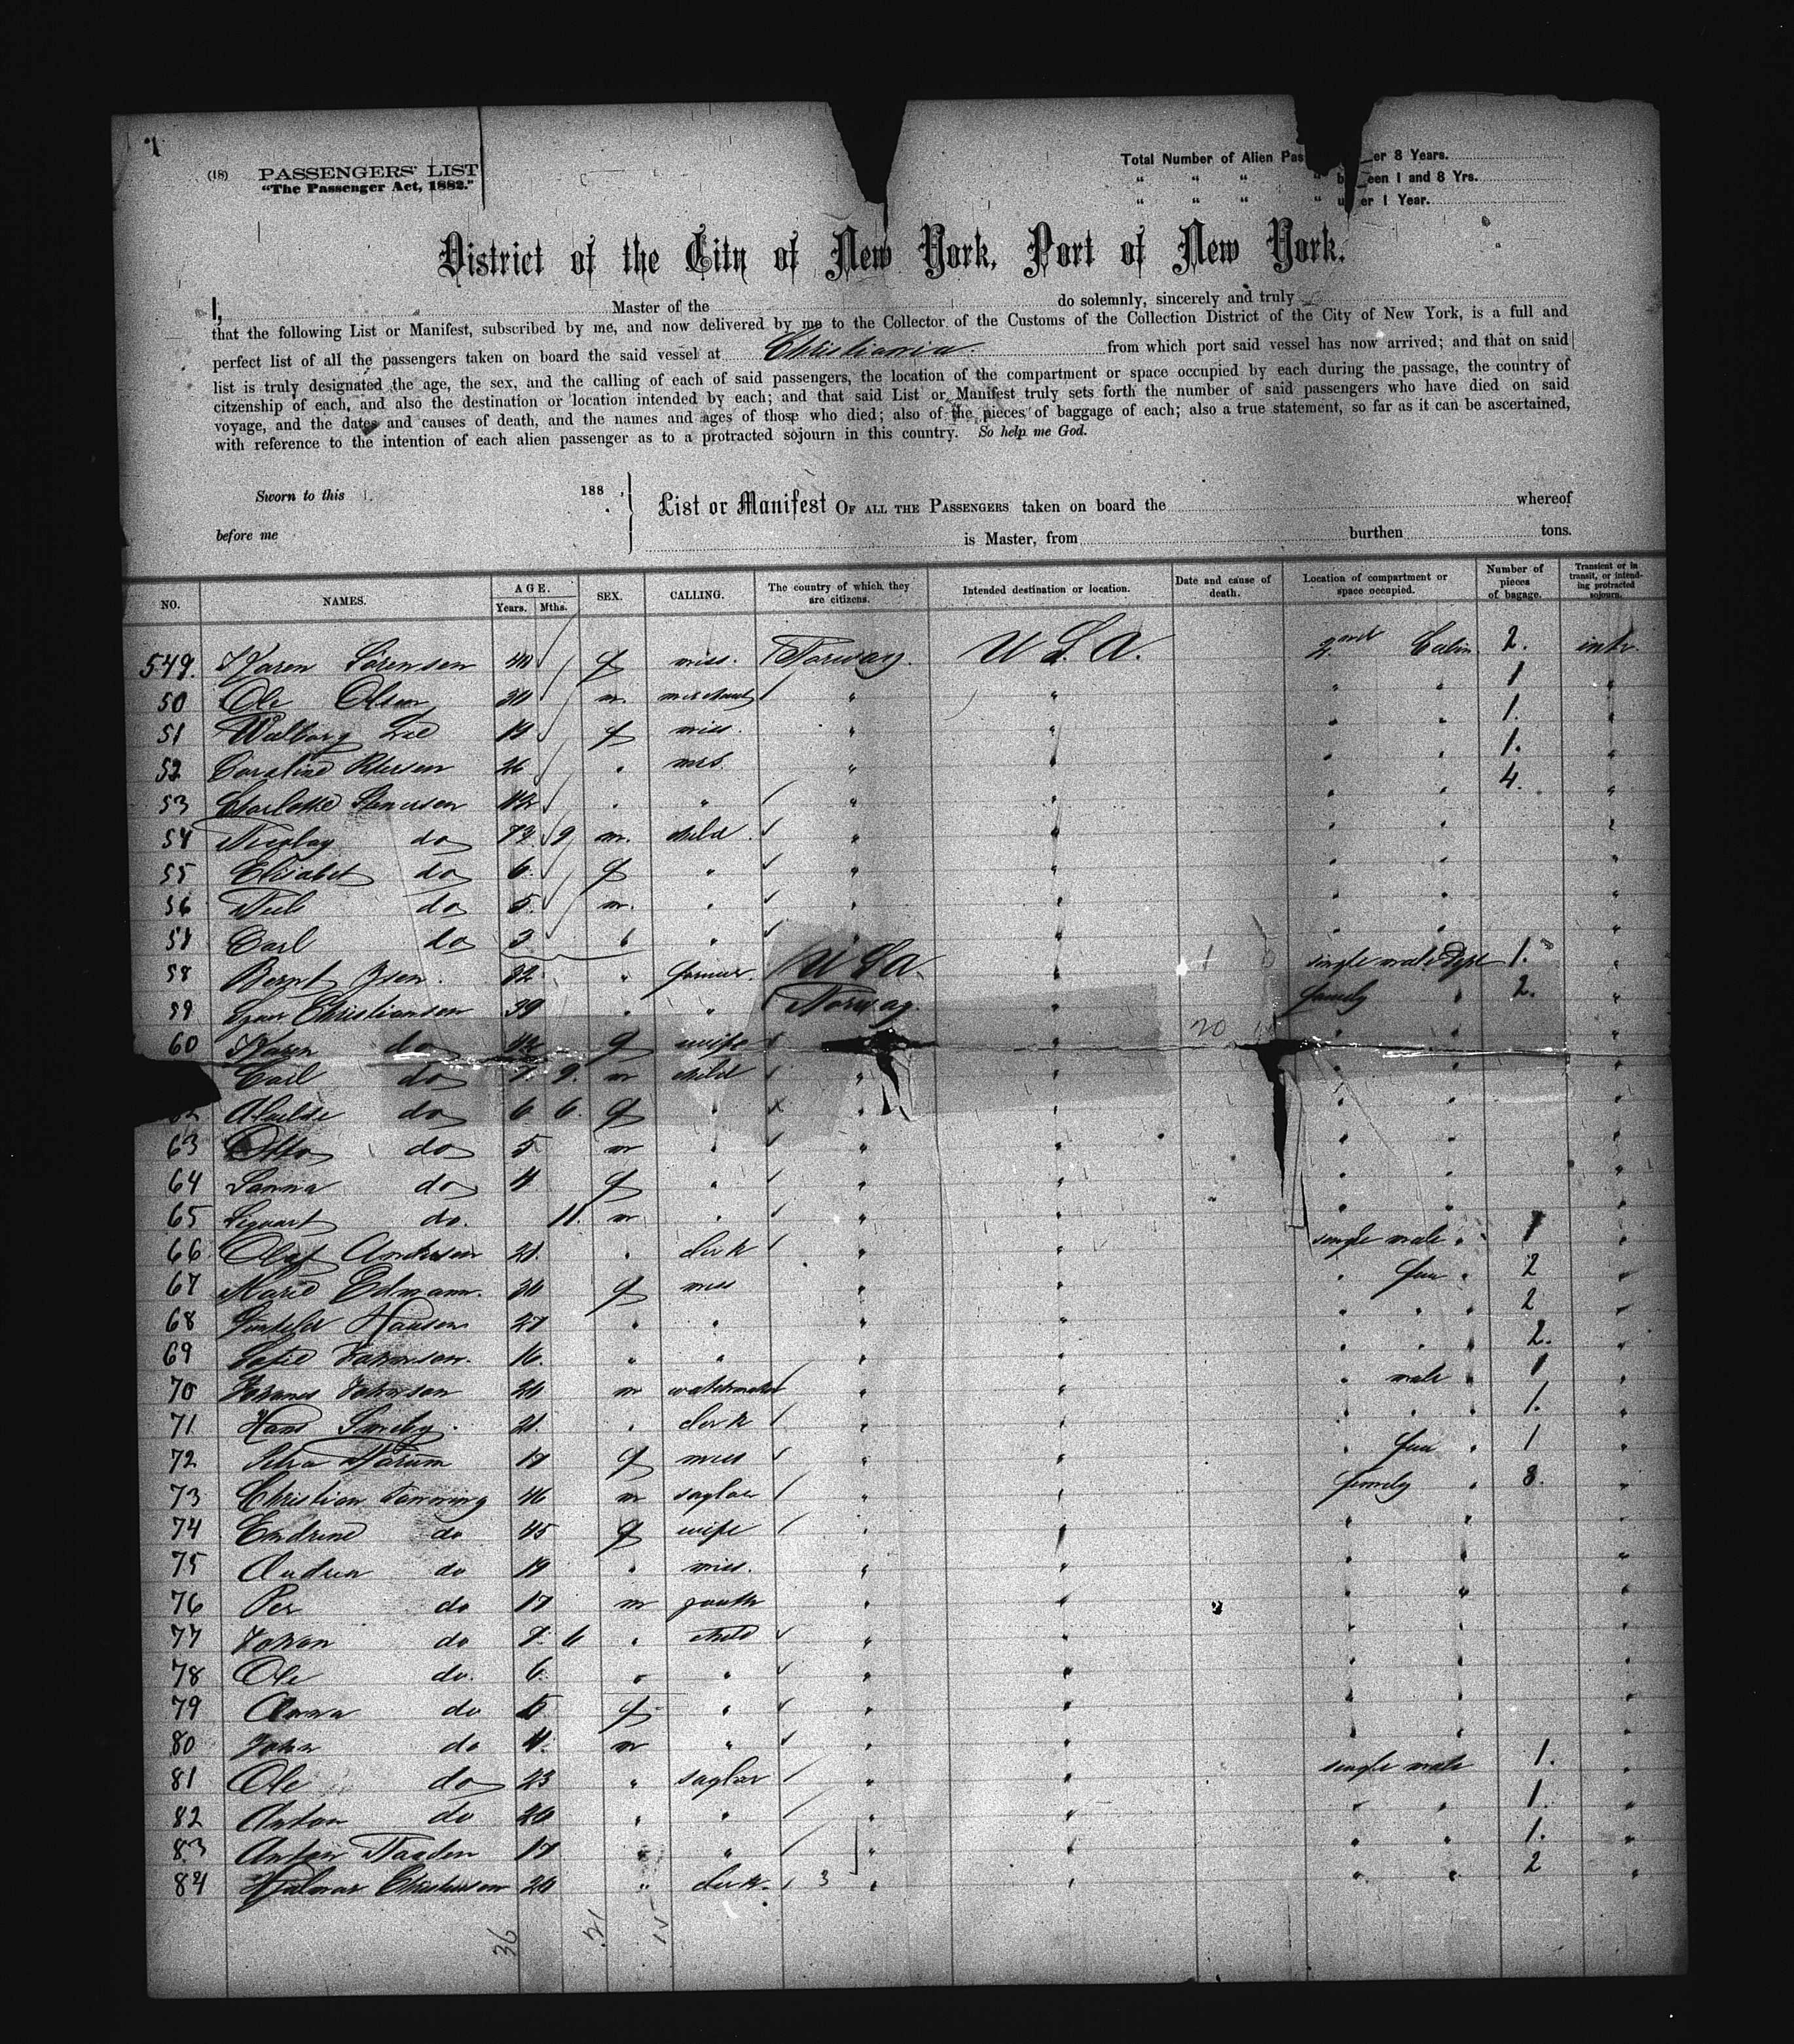 (18) PASSENGERS' LIST
"The Passenger Act, 1882."
Total Number of Alien Pas er 8 Years.
" " " " b een 1 and 8 Yrs.
" " " " u er 1 Year.
District of the City of New York, Port of New York.
I, Master of the do solemnly, sincerely and truly
that the following List or Manifest, subscribed by me, and now delivered by me to the Collector of the Customs of the Collection District of the City of New York, is a full and
perfect list of all the passengers taken on board the said vessel at Christiania. from which port said vessel has now arrived; and that on said
list is truly designated the age, the sex, and the calling of each of said passengers, the location of the compartment or space occupied by each during the passage, the country of
citzenship of each, and also the destination or location intended by each; and that said List or Manifest truly sets forth the number of said passengers who have died on said
voyage, and the dates and causes of death, and the names and ages of those who died; also of the pieces of baggage of each; also a true statement, so far as it can be ascertained,
with reference to the intention of each alien passenger as to a protracted sojourn in this country. So help me God.
Sworn to this 188 ,
before me
List or Manifest OF ALL THE PASSENGERS taken on board the whereof
is Master, from burthen tons.
NO. NAMES. AGE. Years. Mths. SEX. CALLING. The country of which they are citizens. Intended destination or location. Date and cause of death. Location of compartment or space occupied. Number of pieces of bagage. Transient or in transit, or intending protracted sojourn.
549. Karen Sörensen 40 f miss. Norway. U.S.A. 2nd Cabin 2.
50 Ole Olsen 30 m. merchant " " " " 1 "
51 Walborg Lie 19 f miss. " " " " 1. "
52 Caroline 26 " mrs. " " " " 1. "
53 Charlotte 42 " " " " " " 4. "
54 Nicolay do 9 m. child " " " " "
55 Elisabet do 6. f " " " " " "
56 Niels do 5. m. " " " " " "
57 Carl do 3 " " " " " " "
58 Bernt 32 " farmer. U.S.A. " single male Dept 1. "
59 Christiansen 39 " " Norway. " family " 2. "
60 Karen do 42 f wife " " " " "
Carl do 7. 9. m child " " " " "
62 do 6 6. f " " " " " "
63 Otto do 5 m " " " " " "
64 Sanna do 4 f " " " " " "
65 Sigvart do. 11. m " " " " " "
66 Olaf Andersen 21. " clerk " " single male " 1 "
67 Marie Edmann. 30 f miss " " " fem " 2 "
68 Hansen 27 " " " " " " " 2 "
69 Sofie Johnson. 16. " " " " " " " 2. "
70 Johannes Johnson 20 m watchmaker " " " male " 1 "
71 Hans 21. " clerk " " " " " 1. "
72 Petra 17 f miss " " " fem " 1 "
73 Christian 46 m saylor " " family " 8. "
74 Endrine do 45 f wife " " " " "
75 Andrea do 19 " miss. " " " " "
76 Per do 17 m youth " " " " "
77 Johan do 7. 6 " child " " " " "
78 Ole do. 6. " " " " " " "
79 Anna do 5 f " " " " " "
80 John do 4. m " " " " " "
81 Ole do 23 " saylor " " single male 1. "
82 Anton do 20 " " " " " " 1. "
83 Anton 17 " " " " " " 1. "
84 Hjalmar Christensen 20 " clerk. 3 " " " " 2 "
36 21 15